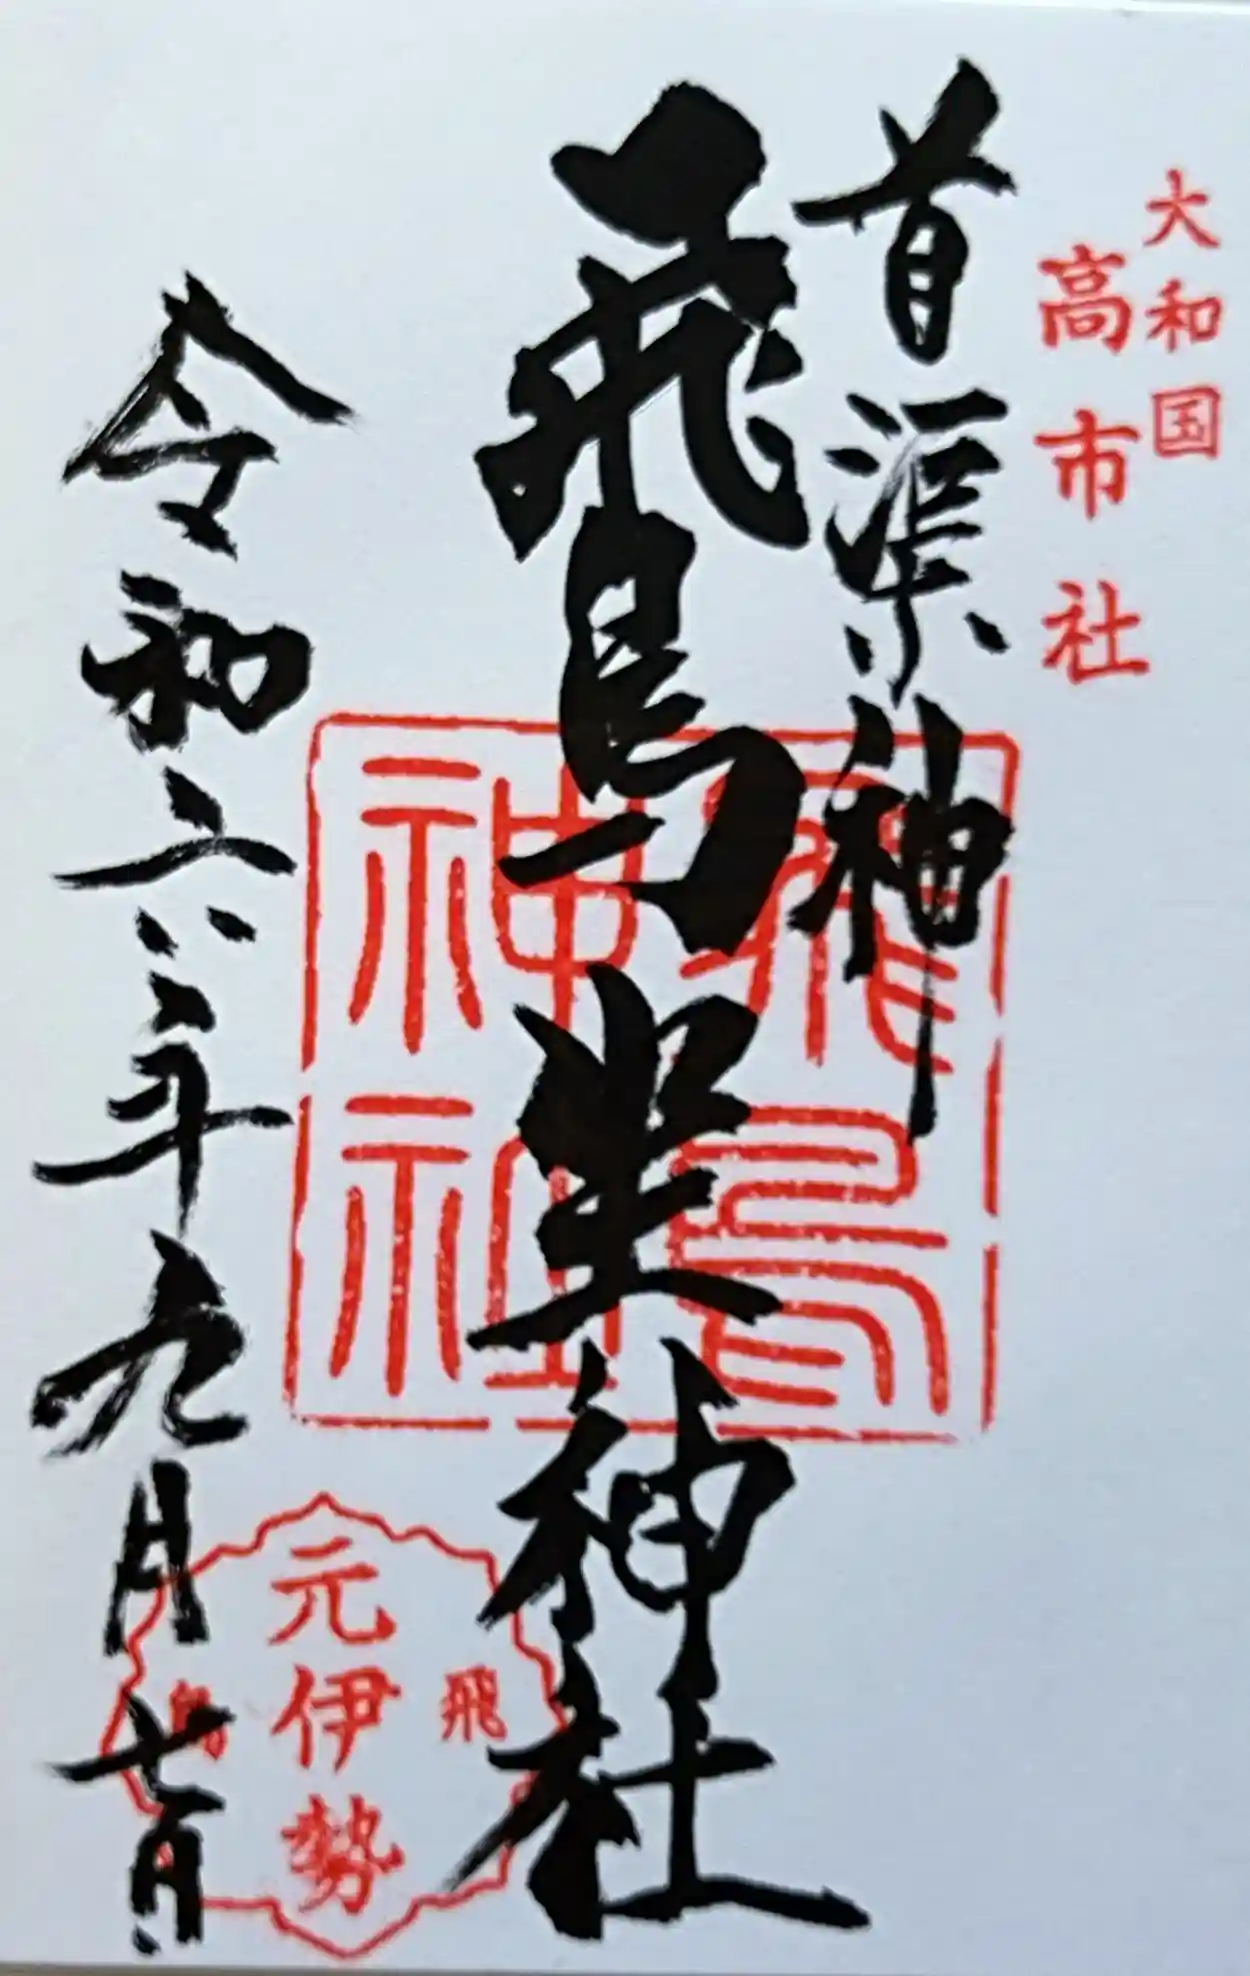 大和国
高市社
首渠神
飛鳥坐神社
飛鳥
神社
飛鳥
元伊勢
令和六年九月七日